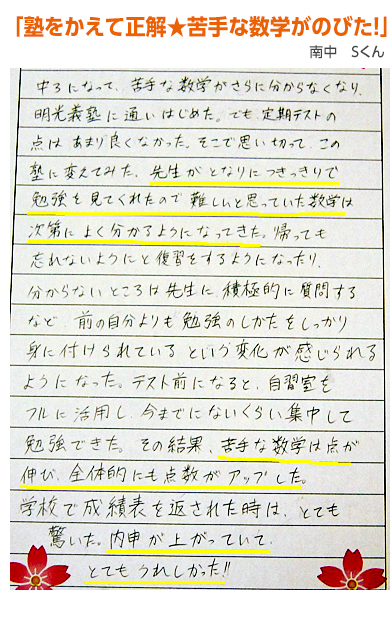 「塾をかえて正解★苦手な数学がのびた!」
南中 Sくん
中3になって、苦手な数学がさらに分からなくなり、
明光義塾に通いはじめた。でも、定期テストの
点はあまり良くなかった。そこで思い切って、この
塾に変えてみた。先生がとなりにつきっきりで
勉強を見てくれたので難しいと思っていた数学は
次第によく分かるようになってきた。帰っても
忘れないようにと復習をするようになったり、
分からないところは先生に、積極的に質問する
など、前の自分よりも勉強のしかたをしっかり
身に付けられているという変化が感じられる
ようになった。テスト前になると、自習室を
フルに活用し、今までにないくらい集中して
勉強できた。その結果、苦手な数学は点が
伸び、全体的にも点数がアップした。
学校で成績表を返された時は、とても
驚いた。内申が上がっていて、
とてもうれしかった!!